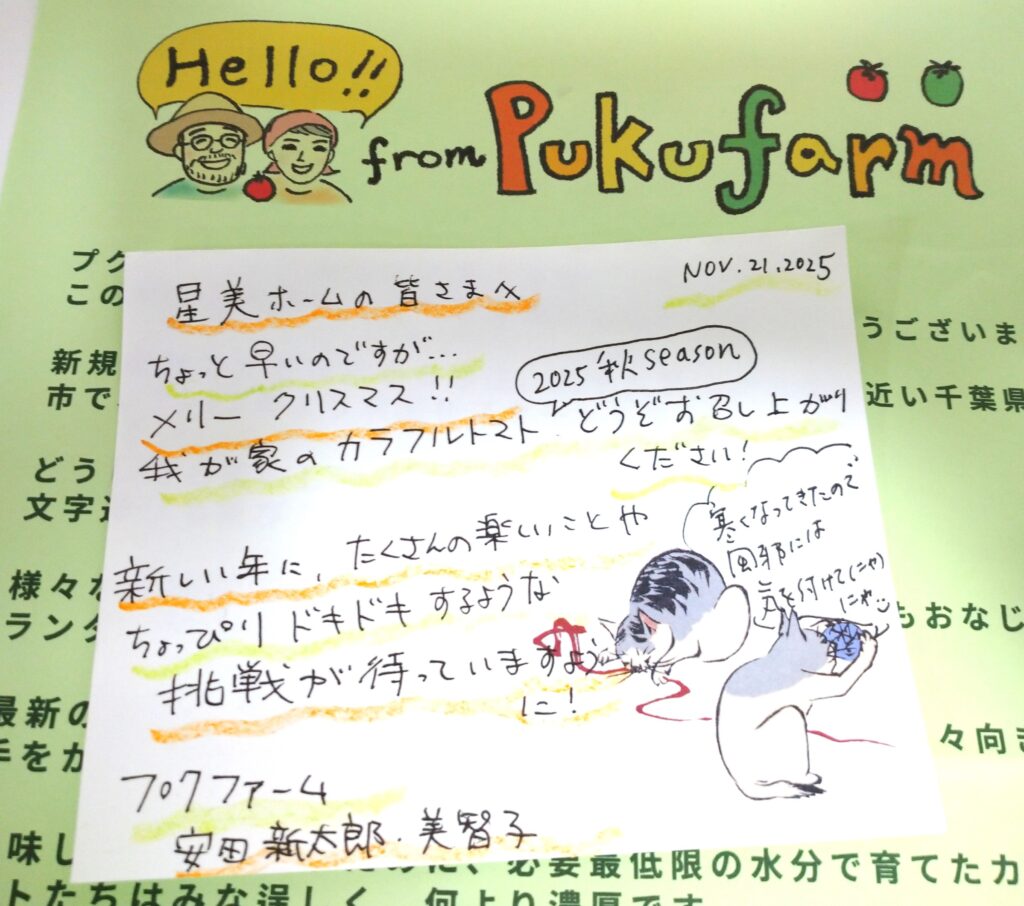 Hello!!
from Pukufarm
NOV. 21, 2025
星美ホームの皆さまへ
ちょっと早いのですが…
メリー クリスマス!!
2025 秋 season
我が家のカラフルトマト どうぞお召し上がり
ください!
新しい年に、たくさんの楽しいことや
ちょっぴり ドキドキ するような
挑戦が待っていますよう
に!
寒くなってきたので
風邪には
気を付けて(にゃ)
にゃ
プクファーム
安田 新太郎・美智子
プク
この
うございま
新規
市で
近い千葉県
どう
文字
様々な
ラン
もおなじ
最新の
手をか
々向き
味し
ために、必要最低限の水分で育てたカ
トたちはみな逞しく、何より濃厚です